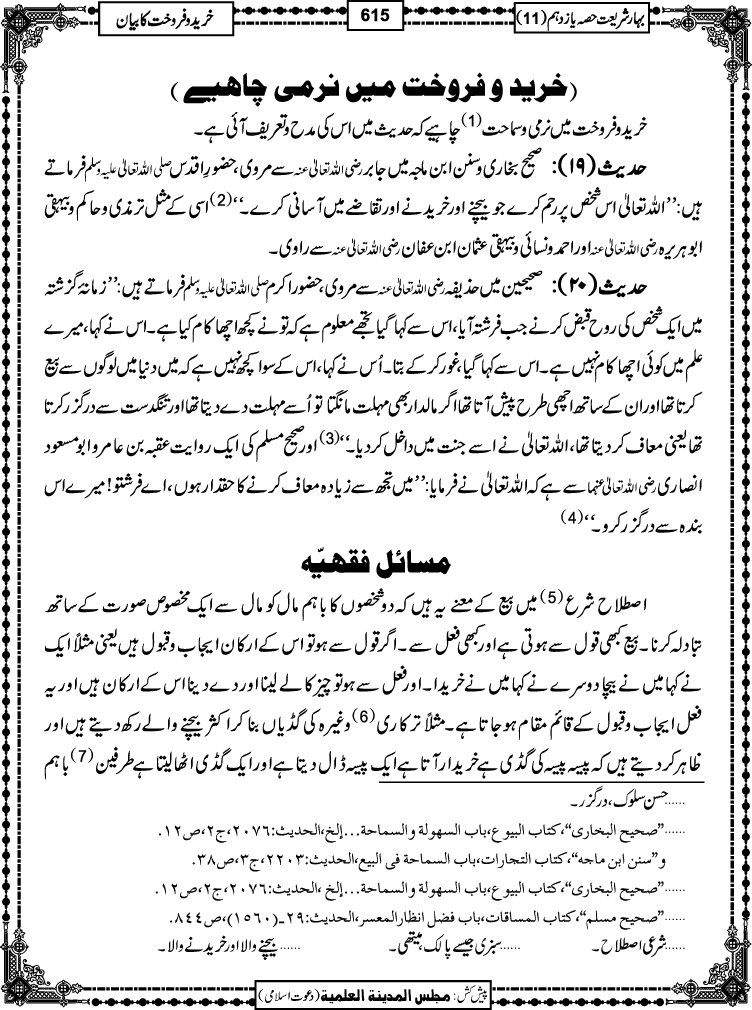 بہارشریعت حصہ یازدہم (11)
615
خرید و فروخت کا بیان
(خرید و فروخت میں نرمی چاھیے)
خرید و فروخت میں نرمی و سماحت (1) چاہیے کہ حدیث میں اس کی مدح و تعریف آئی ہے۔
حدیث (۱۹): صحیح بخاری و سنن ابن ماجہ میں جابر رضی اللہ تعالیٰ عنہ سے مروی، حضورِ اقدس صلی اللہ تعالیٰ علیہ وسلم فرماتے
ہیں: ’’اللہ تعالیٰ اس شخص پر رحم کرے جو بیچنے اور خریدنے اور تقاضے میں آسانی کرے۔‘‘(2) اسی کے مثل ترمذی و حاکم و بیہقی
ابوہریرہ رضی اللہ تعالیٰ عنہ اور احمد و نسائی و بیہقی عثمان ابن عفان رضی اللہ تعالیٰ عنہ سے راوی۔
حدیث (۲۰): صحیحین میں حذیفہ رضی اللہ تعالیٰ عنہ سے مروی، حضور اکرم صلی اللہ تعالیٰ علیہ وسلم فرماتے ہیں: ’’زمانۂ گزشتہ
میں ایک شخص کی روح قبض کرنے جب فرشتہ آیا، اس سے کہا گیا تجھے معلوم ہے کہ تو نے کچھ اچھا کام کیا ہے۔ اس نے کہا، میرے
علم میں کوئی اچھا کام نہیں ہے۔ اس سے کہا گیا، غور کر کے بتا۔ اُس نے کہا، اس کے سوا کچھ نہیں ہے کہ میں دنیا میں لوگوں سے بیع
کرتا تھا اور ان کے ساتھ اچھی طرح پیش آتا تھا اگر مالدار بھی مہلت مانگتا تو اُسے مہلت دے دیتا تھا اور تنگدست سے درگزر کرتا
تھا یعنی معاف کر دیتا تھا، اللہ تعالیٰ نے اسے جنت میں داخل کر دیا۔‘‘(3) اور صحیح مسلم کی ایک روایت عقبہ بن عامر و ابو مسعود
انصاری رضی اللہ تعالیٰ عنہما سے ہے کہ اللہ تعالیٰ نے فرمایا: ’’میں تجھ سے زیادہ معاف کرنے کا حقدار ہوں، اے فرشتو! میرے اس
بندہ سے درگزر کرو۔‘‘(4)
مسائل فقھیّہ
اصطلاح شرع (5) میں بیع کے معنے یہ ہیں کہ دو شخصوں کا باہم مال کو مال سے ایک مخصوص صورت کے ساتھ
تبادلہ کرنا۔ بیع کبھی قول سے ہوتی ہے اور کبھی فعل سے۔ اگر قول سے ہو تو اس کے ارکان ایجاب و قبول ہیں یعنی مثلاً ایک
نے کہا میں نے بیچا دوسرے نے کہا میں نے خریدا۔ اور فعل سے ہو تو چیز کا لے لینا اور دے دینا اس کے ارکان ہیں اور یہ
فعل ایجاب و قبول کے قائم مقام ہو جاتا ہے۔ مثلاً ترکاری (6) وغیرہ کی گڈیاں بنا کر اکثر بیچنے والے رکھ دیتے ہیں اور
ظاہر کر دیتے ہیں کہ پیسہ پیسہ کی گڈی ہے خریدار آتا ہے ایک پیسہ ڈال دیتا ہے اور ایک گڈی اٹھا لیتا ہے طرفین (7) باہم
......حسن سلوک، درگزر۔
......’’صحیح البخاری‘‘، کتاب البیوع، باب السھولة والسماحة...إلخ، الحدیث:۲۰۷۶، ج۲، ص۱۲.
و’’سنن ابن ماجه‘‘، کتاب التجارات، باب السماحة فی البیع، الحدیث:۲۲۰۳، ج۳، ص۳۸.
......’’صحیح البخاری‘‘، کتاب البیوع، باب السھولة والسماحة...إلخ، الحدیث:۲۰۷۶، ج۲، ص۱۲.
......’’صحیح مسلم‘‘، کتاب المساقات، باب فضل انظار المعسر، الحدیث:۲۹ـ(۱۵۶۰)، ص۸۴۴.
......شرعی اصطلاح۔ ......سبزی جیسے پالک، میتھی۔ ......بیچنے والا اور خریدنے والا۔
پیش کش: مجلس المدینة العلمیة (دعوت اسلامی)